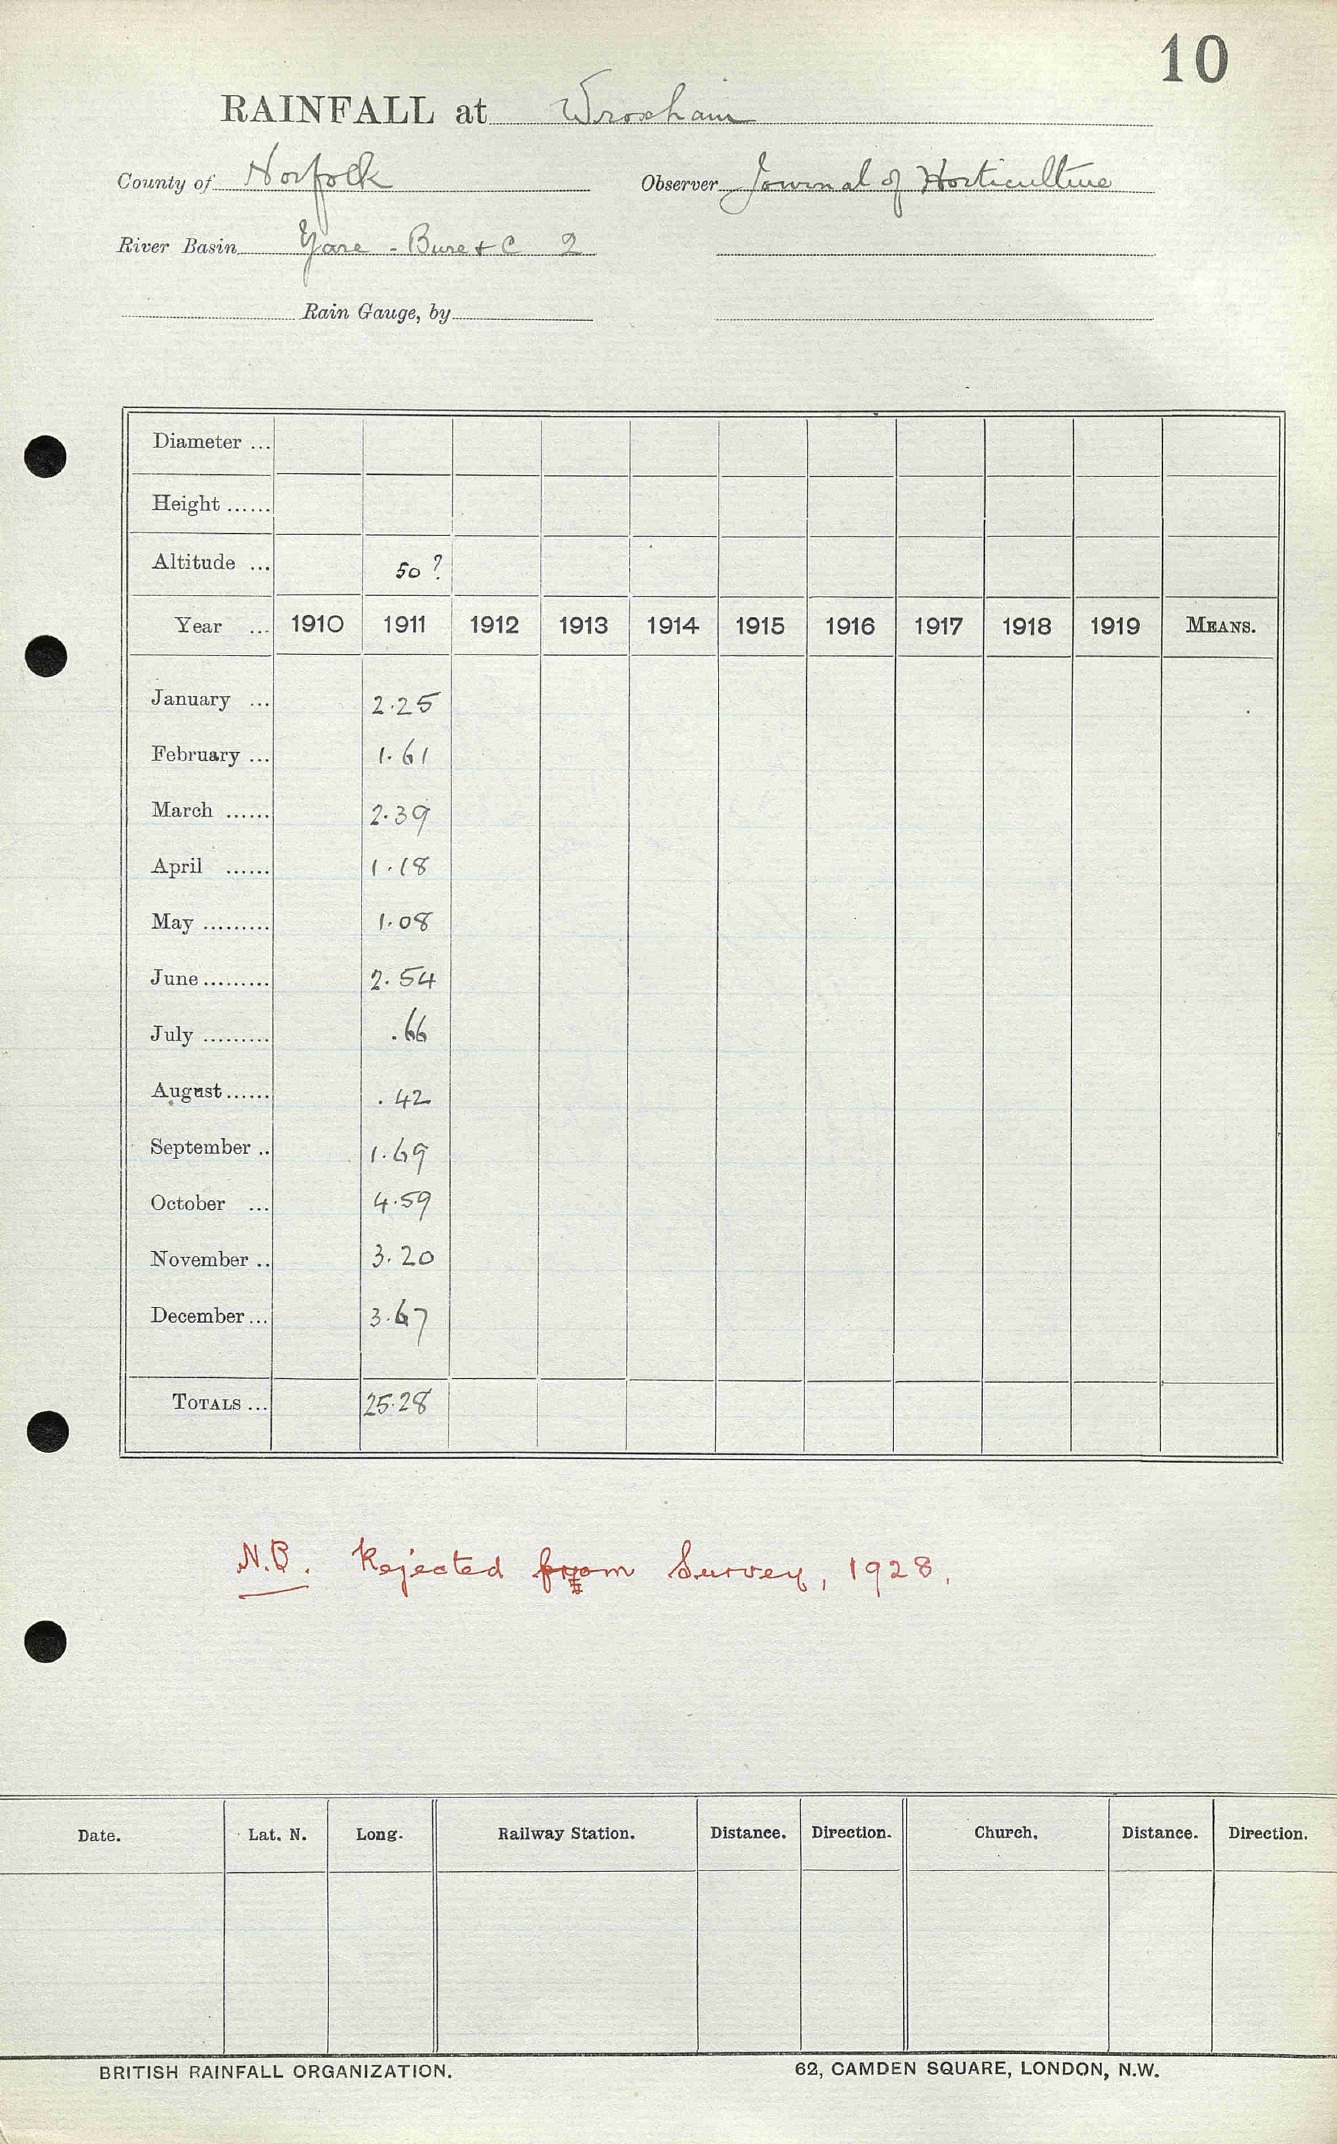 10
RAINFALL at Wroxham
County of Norfolk Observer Journal of Horticulture
River Basin Yare - Bure + C 2
Rain Gauge, by
Diameter ...
Height ......
Altitude ... 50 ?
Year ... 1910 1911 1912 1913 1914 1915 1916 1917 1918 1919 MEANS.
January ... 2.25
February ... 1.61
March ...... 2.39
April ...... 1.18
May ......... 1.08
June ......... 2.54
July ......... .66
August ...... .42
September .. 1.69
October ... 4.59
November .. 3.20
December ... 3.67
TOTALS ... 25.28
N.B. Rejected from Survey, 1928.
Date. Lat. N. Long. Railway Station. Distance. Direction. Church. Distance. Direction.
BRITISH RAINFALL ORGANIZATION. 62, CAMDEN SQUARE, LONDON, N.W.